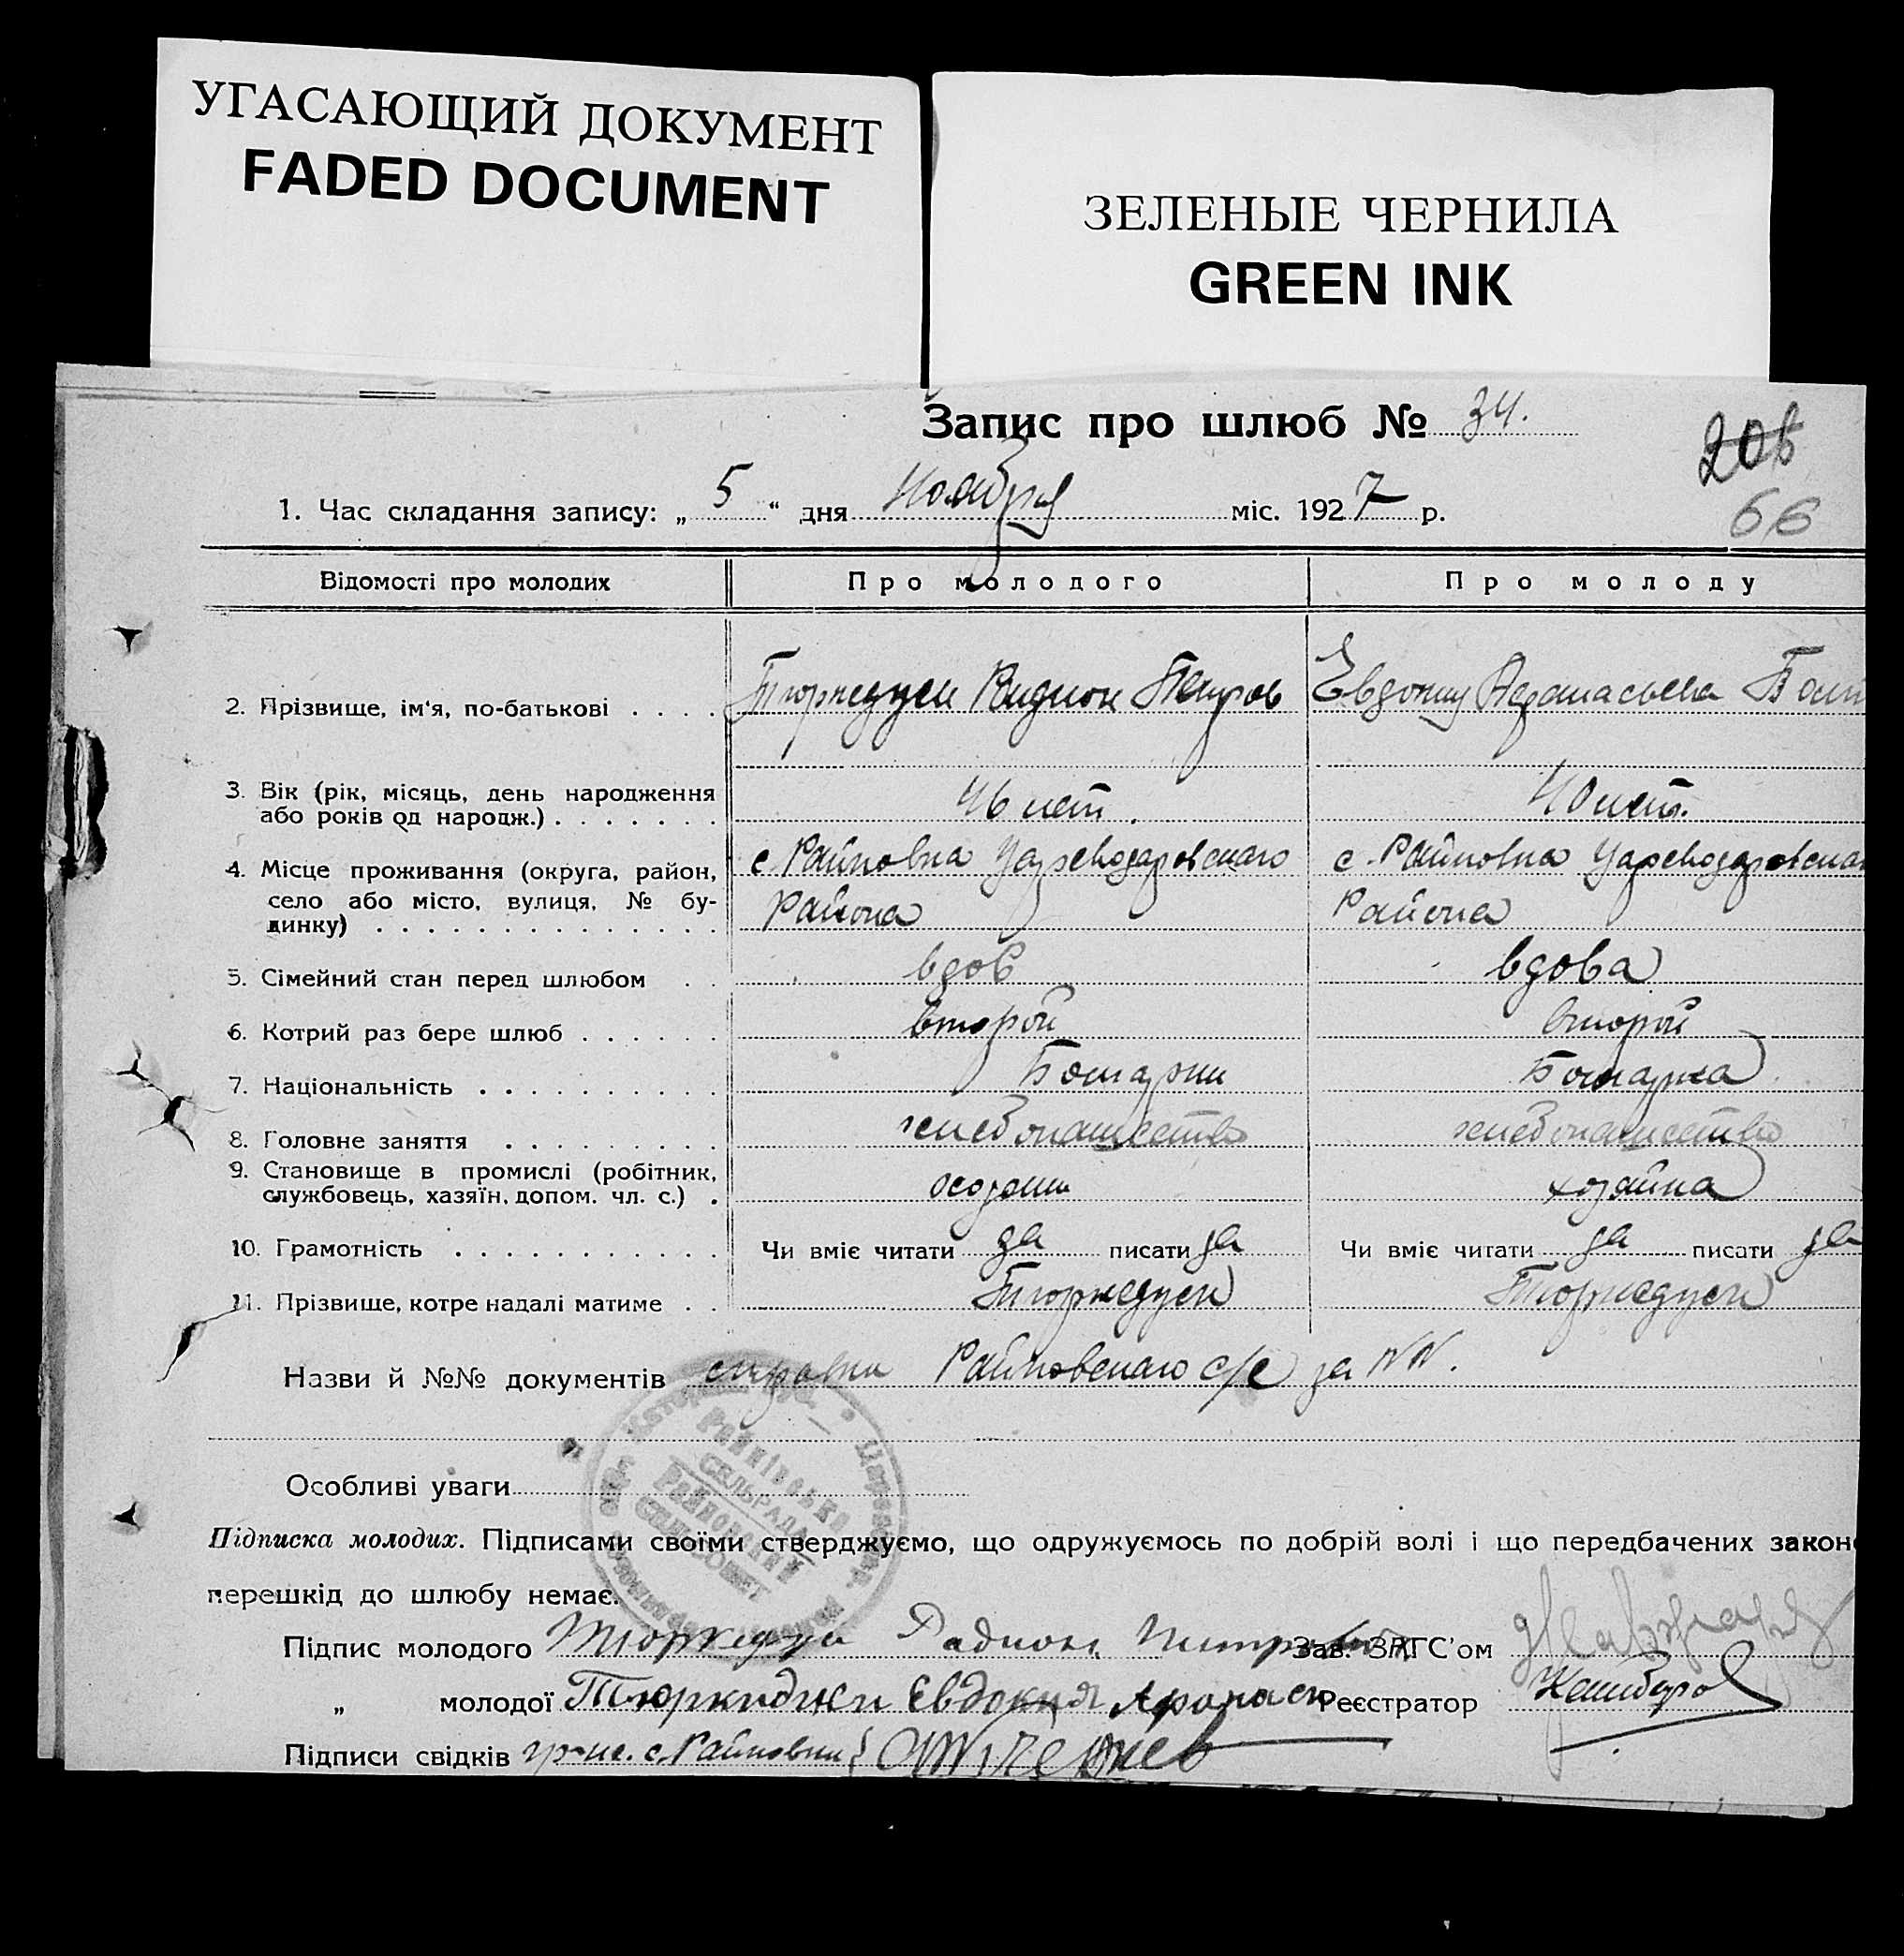 УГАСАЮЩИЙ ДОКУМЕНТ
FADED DOCUMENT
ЗЕЛЕНЫЕ ЧЕРНИЛА
GREEN INK
Запис про шлюб № 34.
66
1. Час складання запису: „ 5 “ дня Ноября міс. 1927 р.
Відомості про молодих Про молодого Про молоду
2. Прізвище, ім‘я, по-батькові . . . . Петров Афанасьева
3. Вік (рік, місяць, день народження
або років од народж.) . . . . . . . 46 лет. 40 лет.
4. Місце проживання (округа, район, с. Райновка Цареводаровскаго с. Райновка
село або місто, вулиця, № бу- Района Района
динку) . . . . . . . . . . . . . .
5. Сімейний стан перед шлюбом . . вдов вдова
6. Котрий раз бере шлюб . . . . . . второй второй
7. Національність . . . . . . . . . . Болгарин Болгарка
8. Головне заняття . . . . . . . . . хлебопашество хлебопашество
9. Становище в промислі (робітник,
службовець, хазяїн, допом. чл. с.) . хозяин хозяйка
10. Грамотність . . . . . . . . . . . Чи вміє читати да писати да Чи вміє читати да писати да
11. Прізвище, котре надалі матиме . .
Назви й №№ документів справки Райновскаго с/с за NN.
Особливі уваги
РАЙНІВСЬКА
СЕЛЬРАДА
РАЙНОВСКИЙ
СЕЛЬСОВЕТ
Підписка молодих. Підписами своїми стверджуємо, що одружуємось по добрій волі і що передбачених законо
перешкід до шлюбу немає.
Підпис молодого Радион Зав. ЗАГС'ом
„ молодої Евдокия Реєстратор
Підписи свідків гр-не. с. Райновки